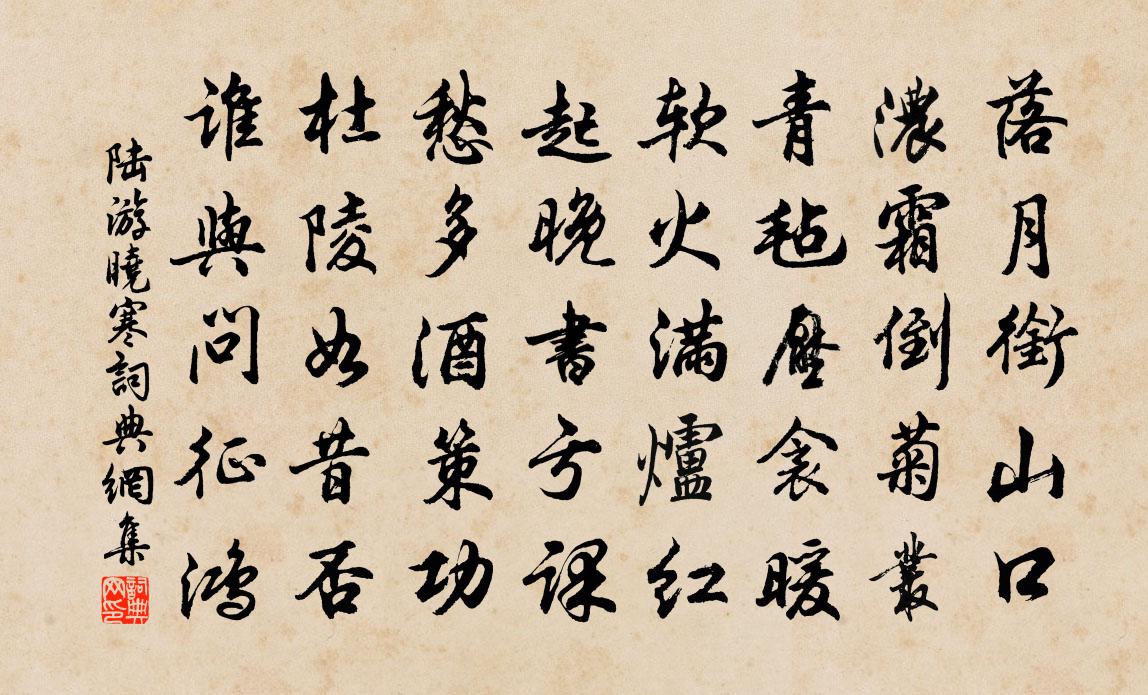 落月銜山口
濃霜倒菊叢
青毡壓衾暖
軟火滿爐紅
起晚書亏課
愁多酒策功
杜陵如昔否
誰與問征鴻
陆游曉寒詞典網集
詞典网印